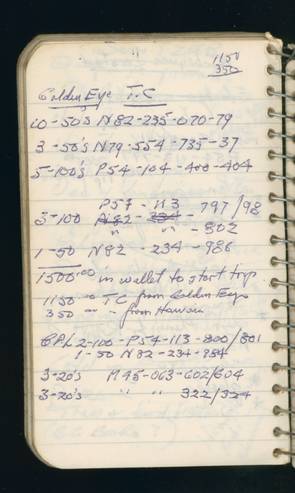 1150
350
Golden Eye T.C
10-50s N82-235-070-79
3-50's N79-554-735-37
5-100's P54-104-400-404
P54-113-797/98
3-100 N82-234-
" " -802
1-50 N82-234-986
1500.00 in wallet to start trip
1150 00 TC from Golden Eye
350 " " from Hawaii
2-100-P54-113-800/801
1-50 N82-234-984
3-20's M95-063-602/604
3-20's " " 322/324